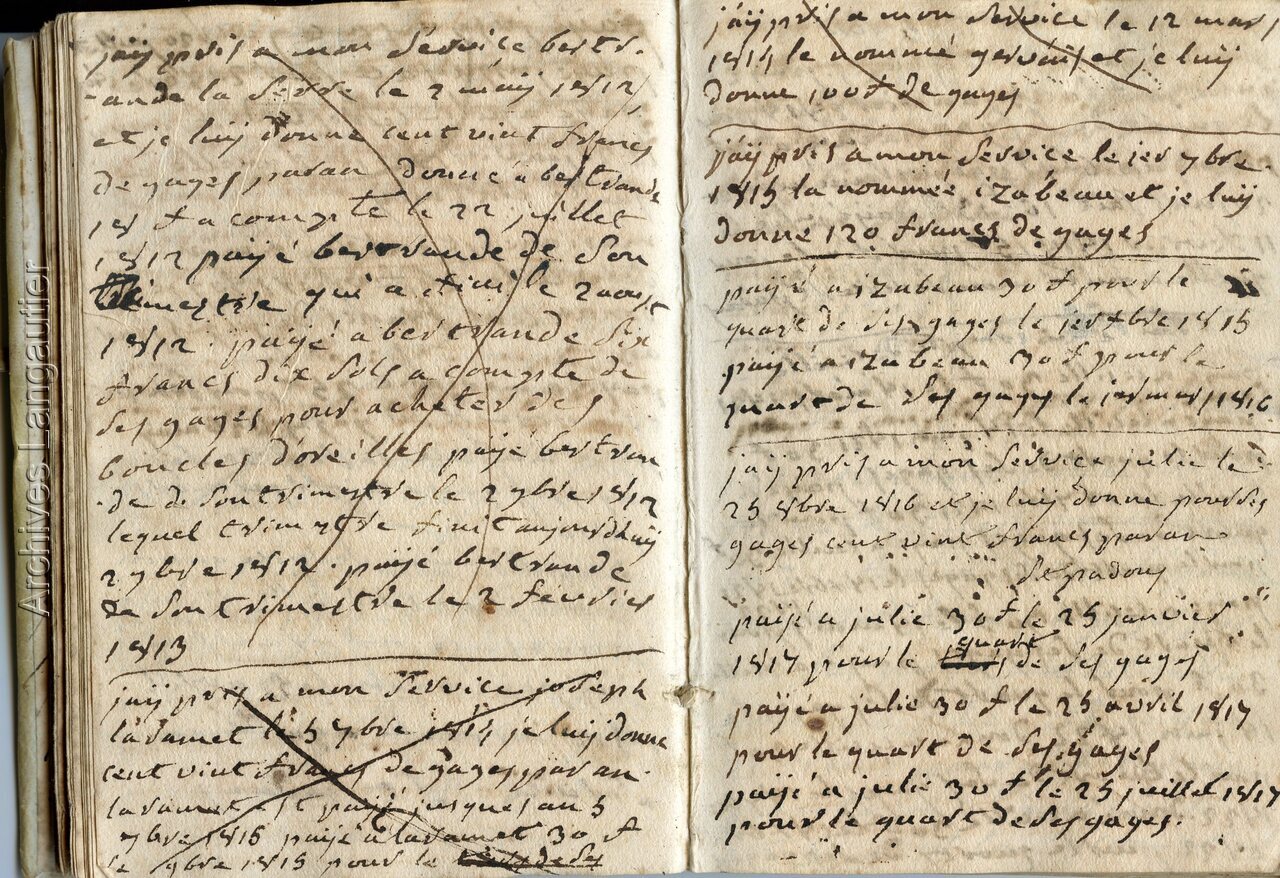 jaÿ pris a mon service bertr-
-ande la serre le 2 maÿ 1812
et je luÿ donne cent vint francs
de gages paran donné a bertrande
18 f a compte le 22 juillet
1812 payé bertrande de son
trimestre qui a fini le 2 aoust
1812. payé a bertrande six
francs dix sols a compte de
ses gages pour acheter des
boucles d'oreilles payé bertran
-de de son trimestre le 2 9bre 1812
lequel trimestre finit aujourdhuÿ
2 9bre 1812. payé bertrande
de son trimestre le 2 fevrier
1813
jaÿ pris a mon service joseph
laramet le 5 9bre 1814 je luÿ donne
cent vint francs de gages par an.
laramet est payé jusques au 5
9bre 1815 payé a laramet 30 f
le 9bre 1815 pour le
jaÿ pris a mon service le 12 mars
1815 le nommé gervais et je luÿ
donne 100 f de gages
jaÿ pris a mon service le ier 9bre
1815 la nommée izabeau et je luÿ
donne 120 francs de gages
payé a izabeau 30 f pour le
quart de ses gages le ier xbre 1815
payé a izabeau 30 f pour le
quart de ses gages le ier mars 1816
jaÿ pris a mon service julie le
25 8bre 1816 et je luÿ donne pour ses
gages cent vint francs paran
payé a julie 30 f le 25 janvier
1817 pour le quart de ses gages
payé a julie 30 f le 25 avril 1817
pour le quart de ses gages
payé a julie 30 f le 25 juillet 1817
pour le quart de ses gages.
Archives Langautier